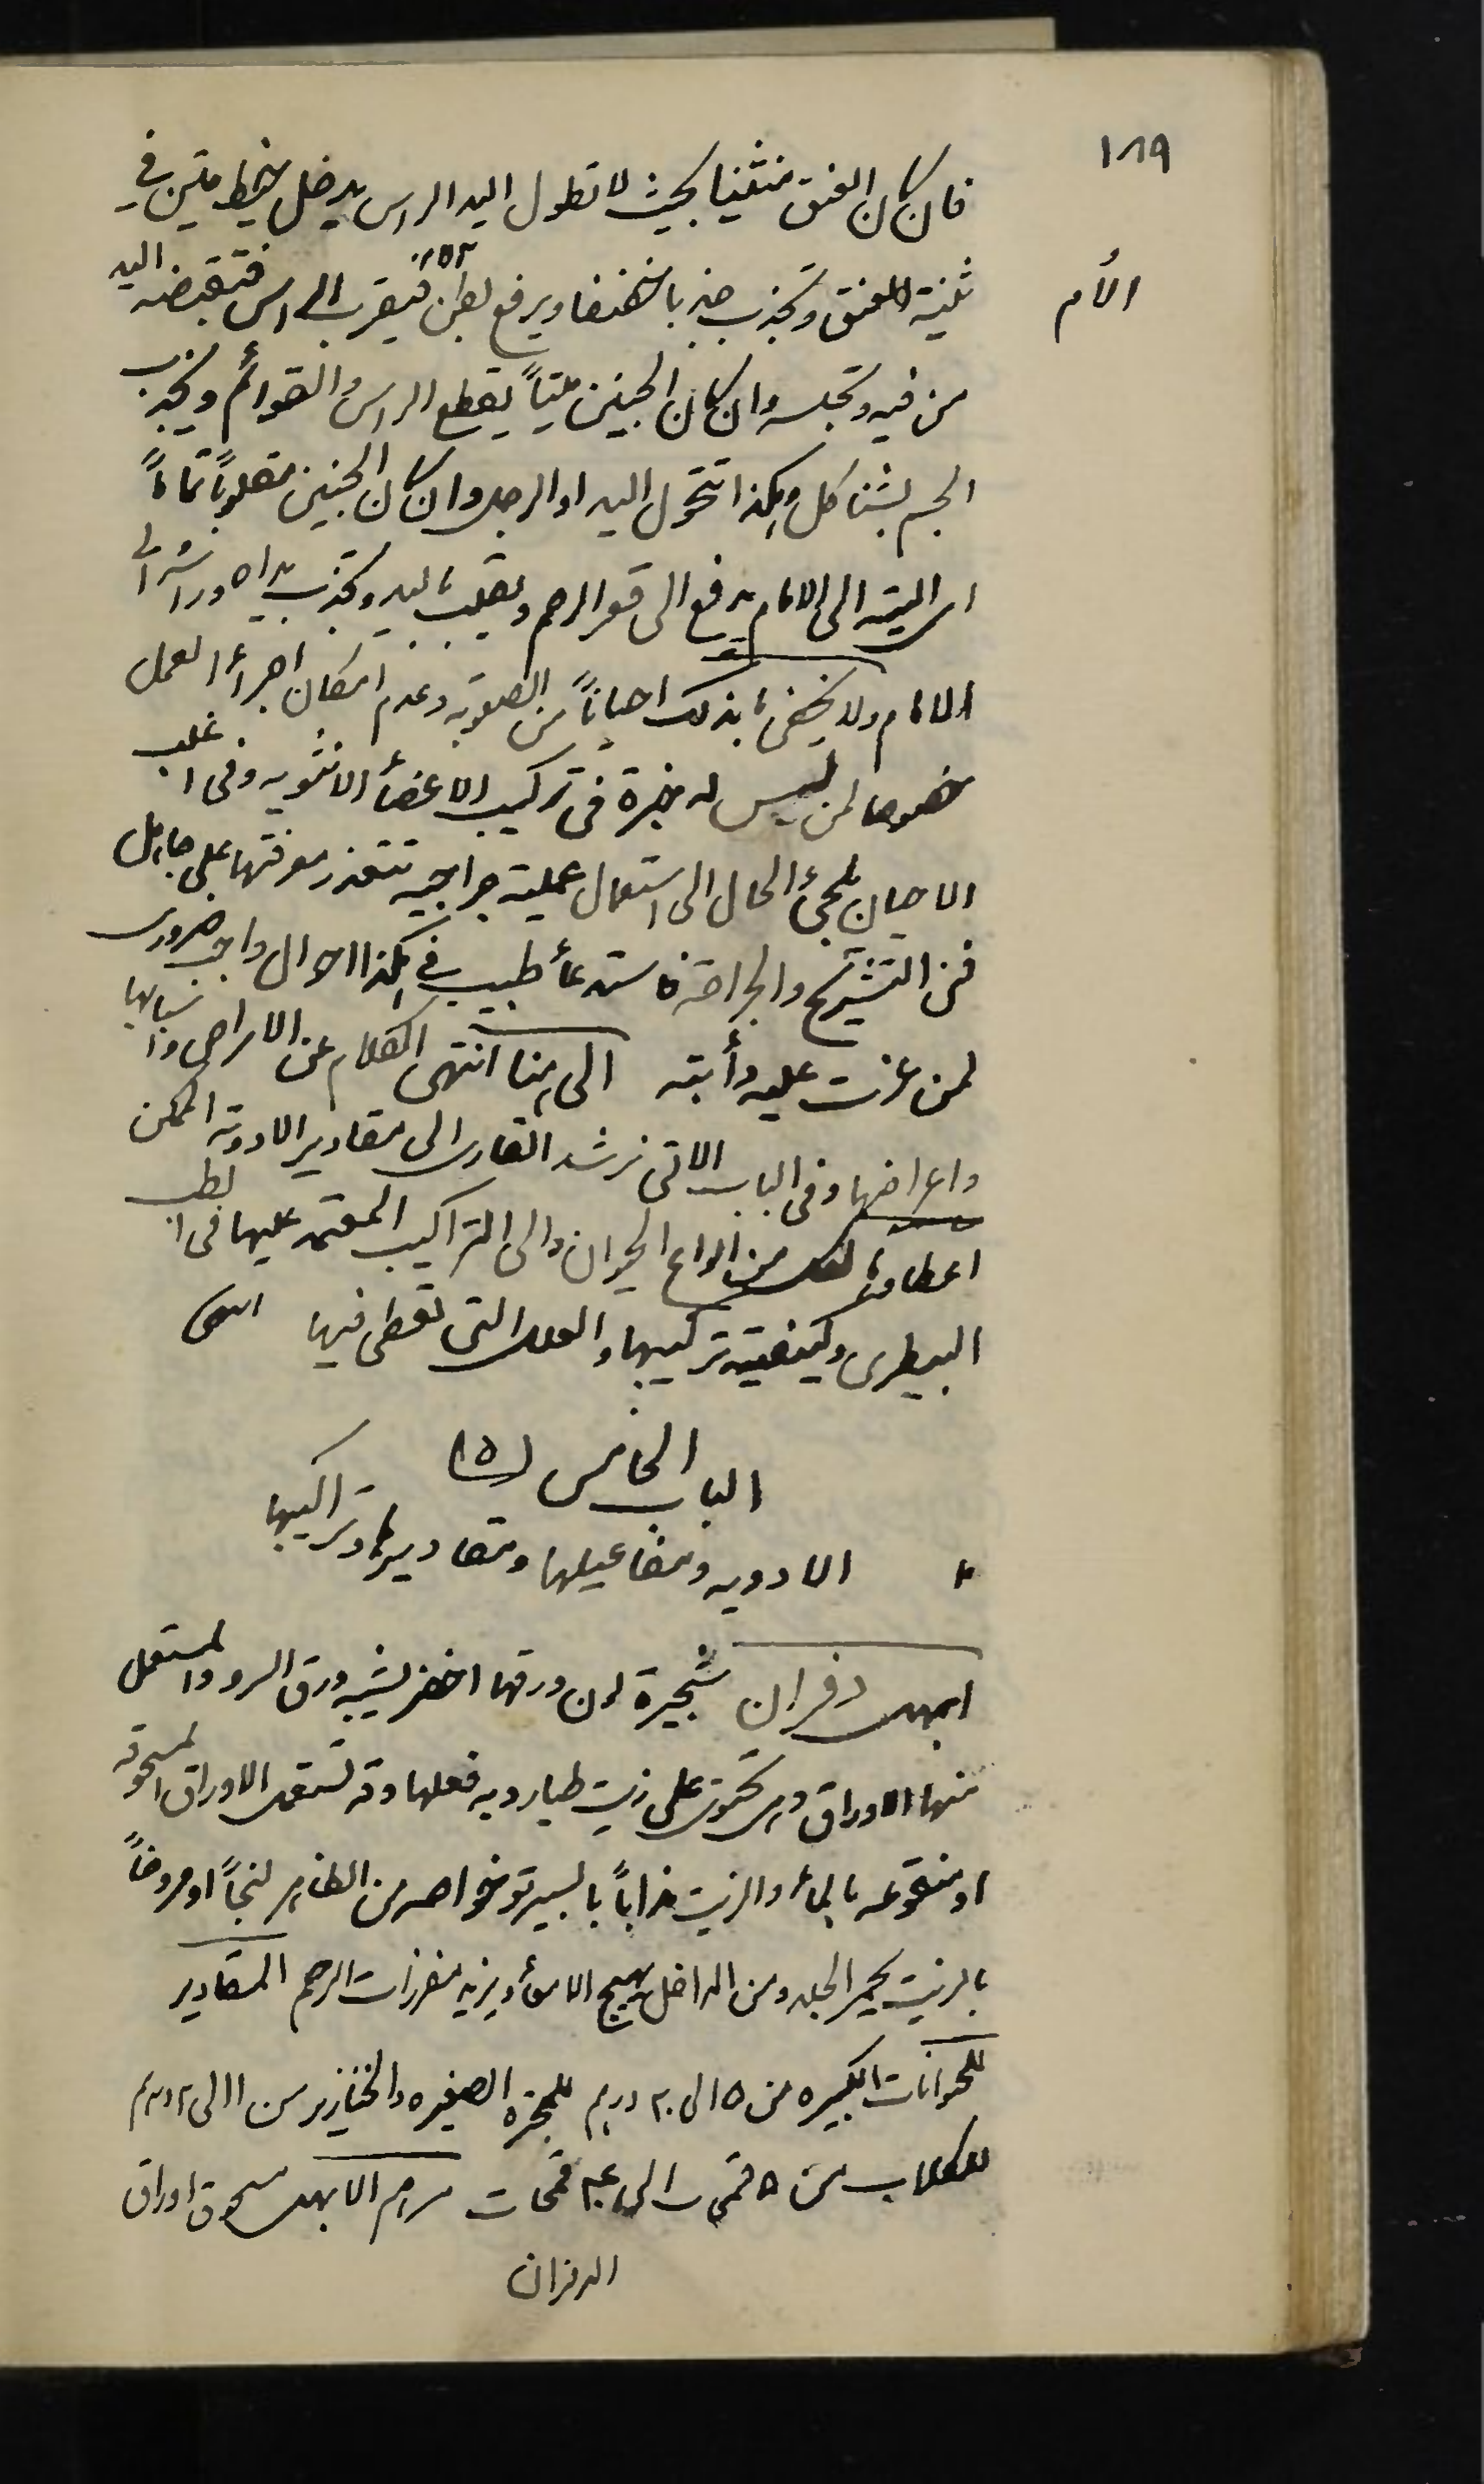 ١٨٩
فان كان العنق منثنيا بحيث لا تطول اليد الراس يدخل خيط متين في
ثنية العنق وتجذب جذبا خفيفا ويرفع بطن الأم فيقرب الراس فتقبضه اليد
من فيه وتجلسه وان كان الجنين ميتاً يقطع الراس والقوائم ويجذب
الجسم بشناكل وهكذا تتحول اليد او الرجل وان كان الجنين مقلوباً تماماً
اى اليته الى الامام يدفع الى قعر الرحم ويقلب باليد وتجذب يداه وراسه الى
الامام ولا يخفى ما بذلك احياناً من الصعوبه وعدم امكان اجرأ العمل
خصوصا لمن ليس له خبرة فى تركيب الاعضأ الانثويه وفى اغلب
الاحيان يلجئ الحال الى استعمال عملية جراحيه تتعذر معرفتها على جاهل
فن التشريح والجراحة فاستدعأ طبيب في هكذا احوال واجب ضرورى
لمن عزت عليه دأبته الى هنا انتهى الكلام عن الامراض واسبابها
واعراضها وفى الباب الاتى نرشد القارى الى مقادير الادوية الممكن
اعطاوها لكل من انواع الحيوان والى التراكيب المعتمد عليها فى الطب
البيطرى وكيفية تركيبها والعلل التى تعطى فيها انتهى
الباب الخامس (٥)
الادويه ومفاعيلها ومقاديرها وتراكيبها
ابهل دفران شجيرة لون ورقها اخضر يشبه ورق السرو والمستعمل
منها الاوراق وهى تحتوى على زيت طيار وبه فعلها وقد تستعمل الاوراق المسحوقه
او منقوعه بالمأ والزيت مذاباً بالسبيرتو خواصه من الظاهر لنجاً او مروخاً
بالزيت يحمر الجلد ومن الداخل يهيج الامعأ ويزيد مفرزات الرحم المقادير
للحيوانات الكبيره من ٥ الى ٢٠ درهم للمجتره الصغيره والخنازير من ١ الى ٢ درهم
للكلاب من ٥ قمحات الى قمحات مرهم الابهل مسحوق اوراق
الدفران
الأم